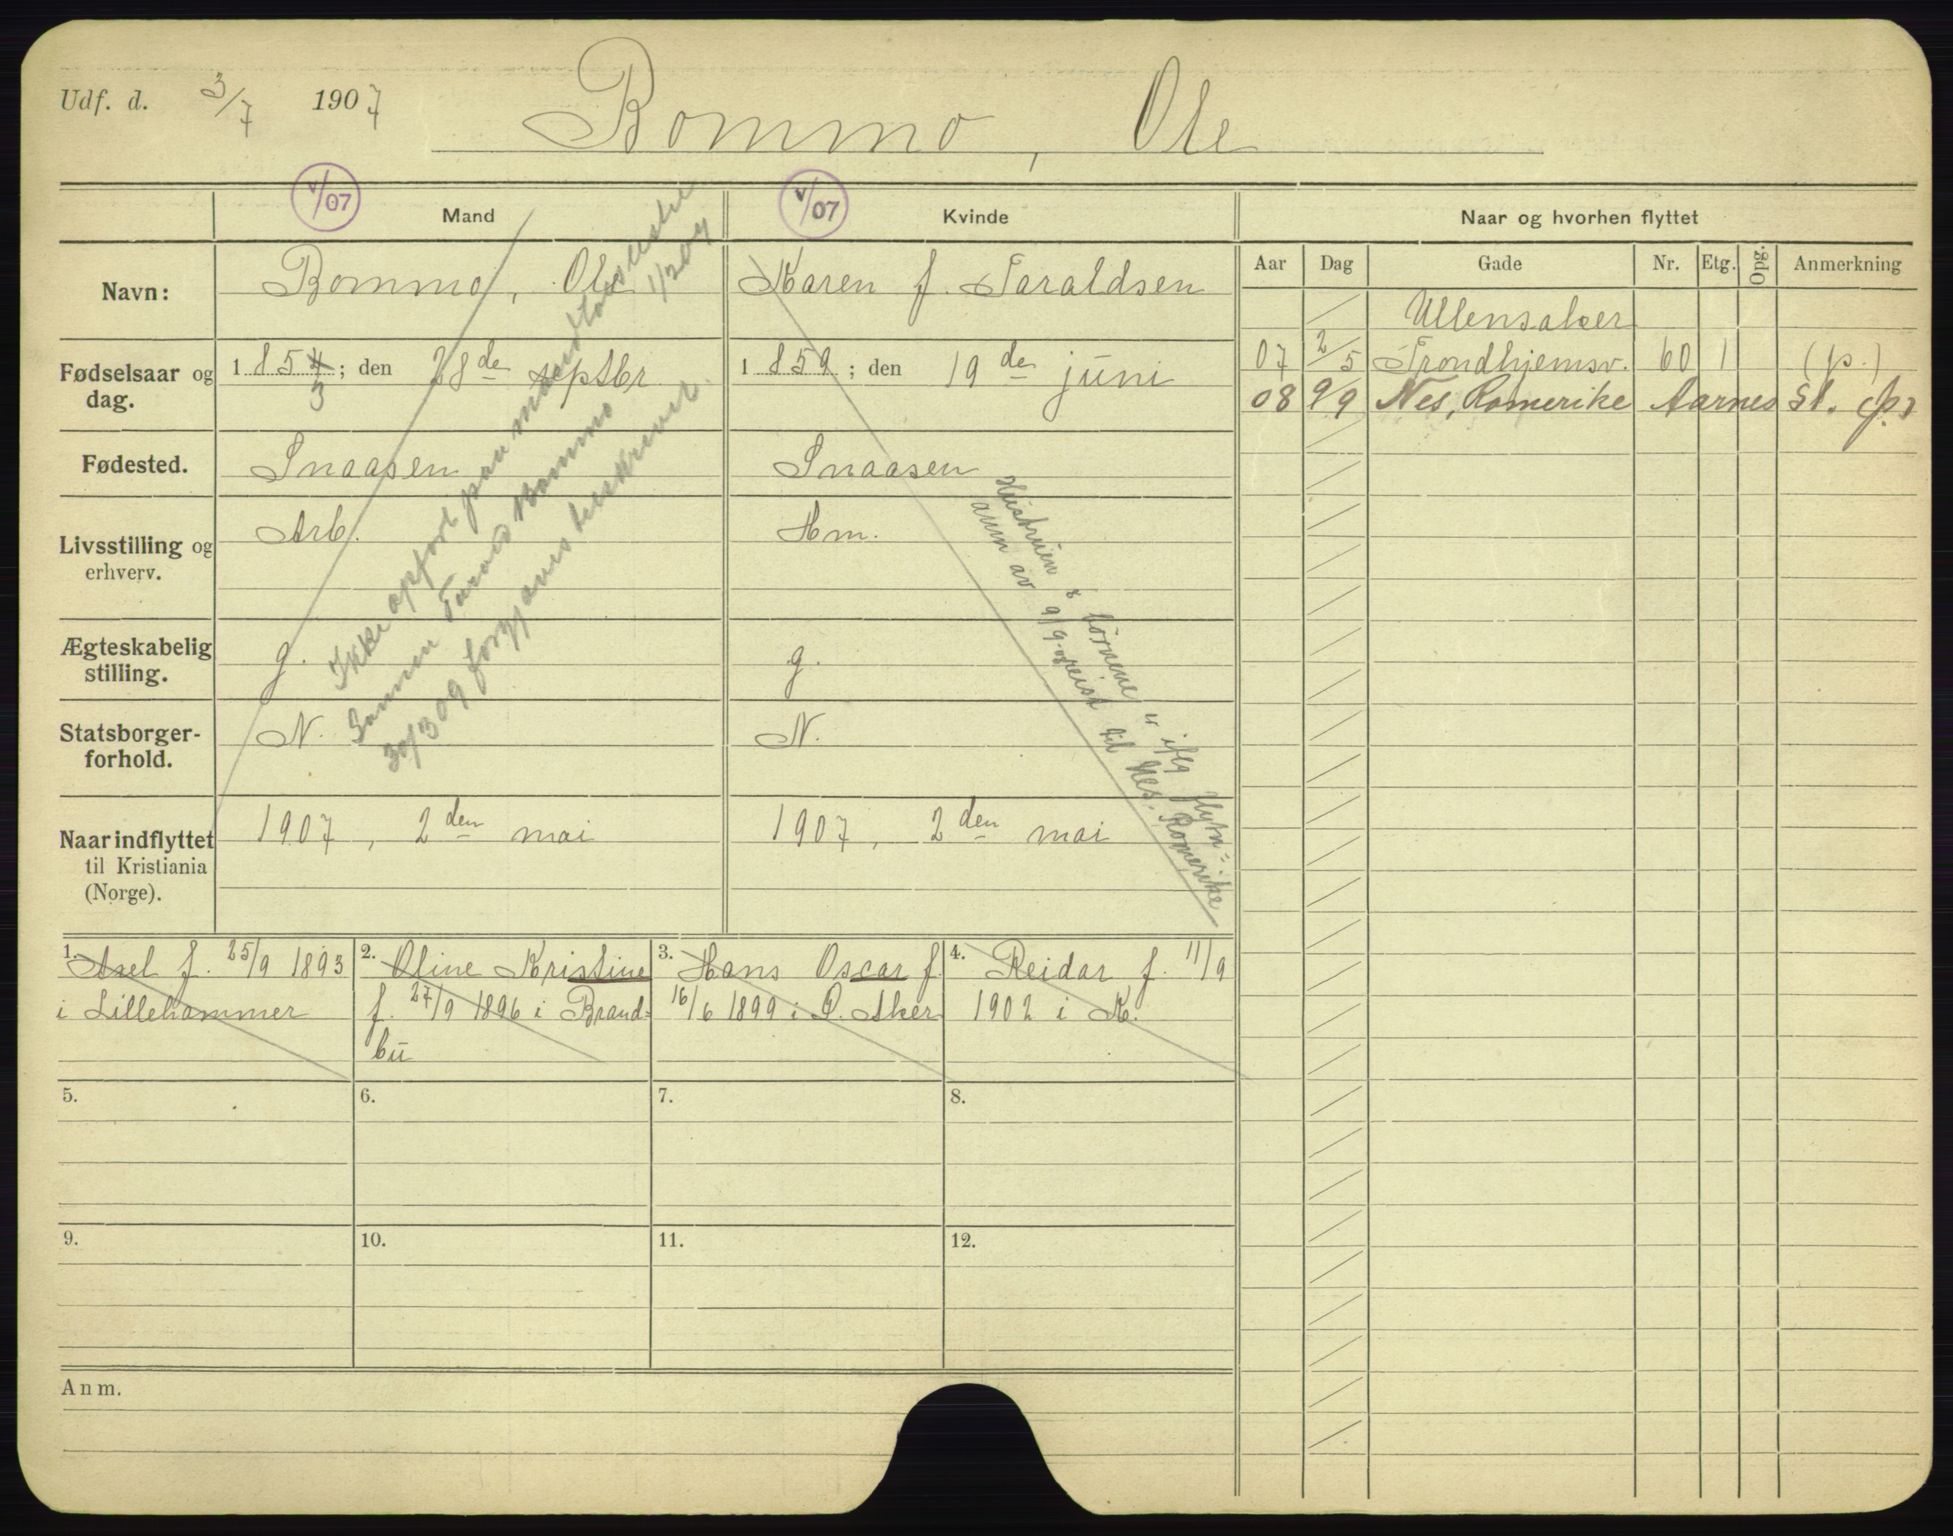 Udf. d. 3/7 1907 Bommo, Ole
V/07 V/07
Mand Kvinde Naar og hvorhen flyttet
Aar Dag Gade Nr. Etg. Opg. Anmerkning
Navn: Bommo, Ole Karen f. Taraldsen
Ullensaker
07 2/5 Trondhjemsv. 60 1 (p.)
08 9/9 Nes, Romerike Aarnes St. (p)
Fødselsaar og dag. 1 854 ; den 28de septbr 1 859 ; den 19de juni
3
Fødested. Snaasen Snaasen
Livsstilling og Arb. Hm.
erhverv.
Ægteskabelig g. g.
stilling.
Statsborger- N. N.
forhold.
Naar indflyttet 1907, 2den mai 1907, 2den mai
til Kristiania
(Norge).
Ikke opført paa mandtalsliste 1/2 09
Bommo
30/3 09 forgjæves
Hustruen & børnene iflg flytn=
anm av 9/9 reist til Nes. Romerike
1. Axel f. 25/9 1893
i Lillehammer
2. Oline Kristine
f. 27/9 1896 i Brand=
bu
3. Hans Oscar f.
16/6 1899 i Ø. Aker
4. Reidar f. 11/9
1902 i K.
5. 6. 7. 8.
9. 10. 11. 12.
Anm.